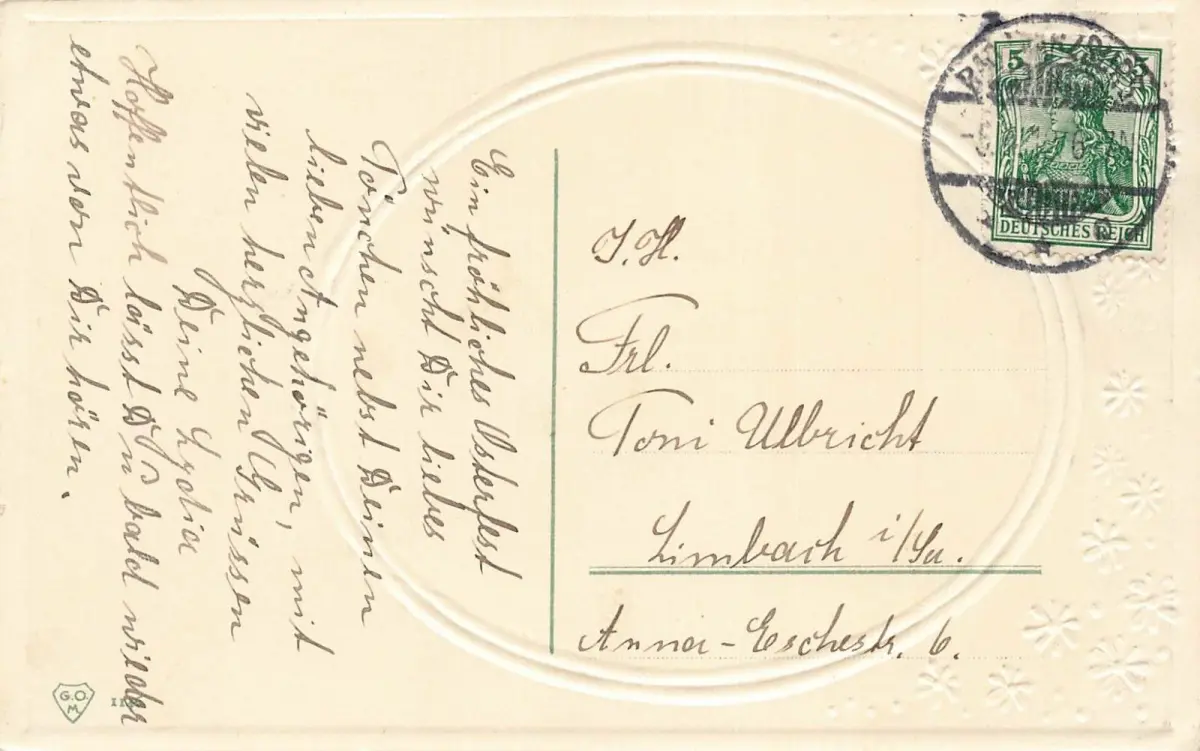 Ein fröhliches Osterfest
wünscht Dir liebes
Tonchen nebst Deinen
lieben Angehörigen, mit
vielen herzlichen Grüssen
Deine Lydia
Hoffentlich lässt Du bald wieder
etwas von Dir hören.
5 5
DEUTSCHES REICH
Frl.
Toni Ulbricht
Limbach i/Sa.
Anna-Eschestr. 6.
G.O.
M.